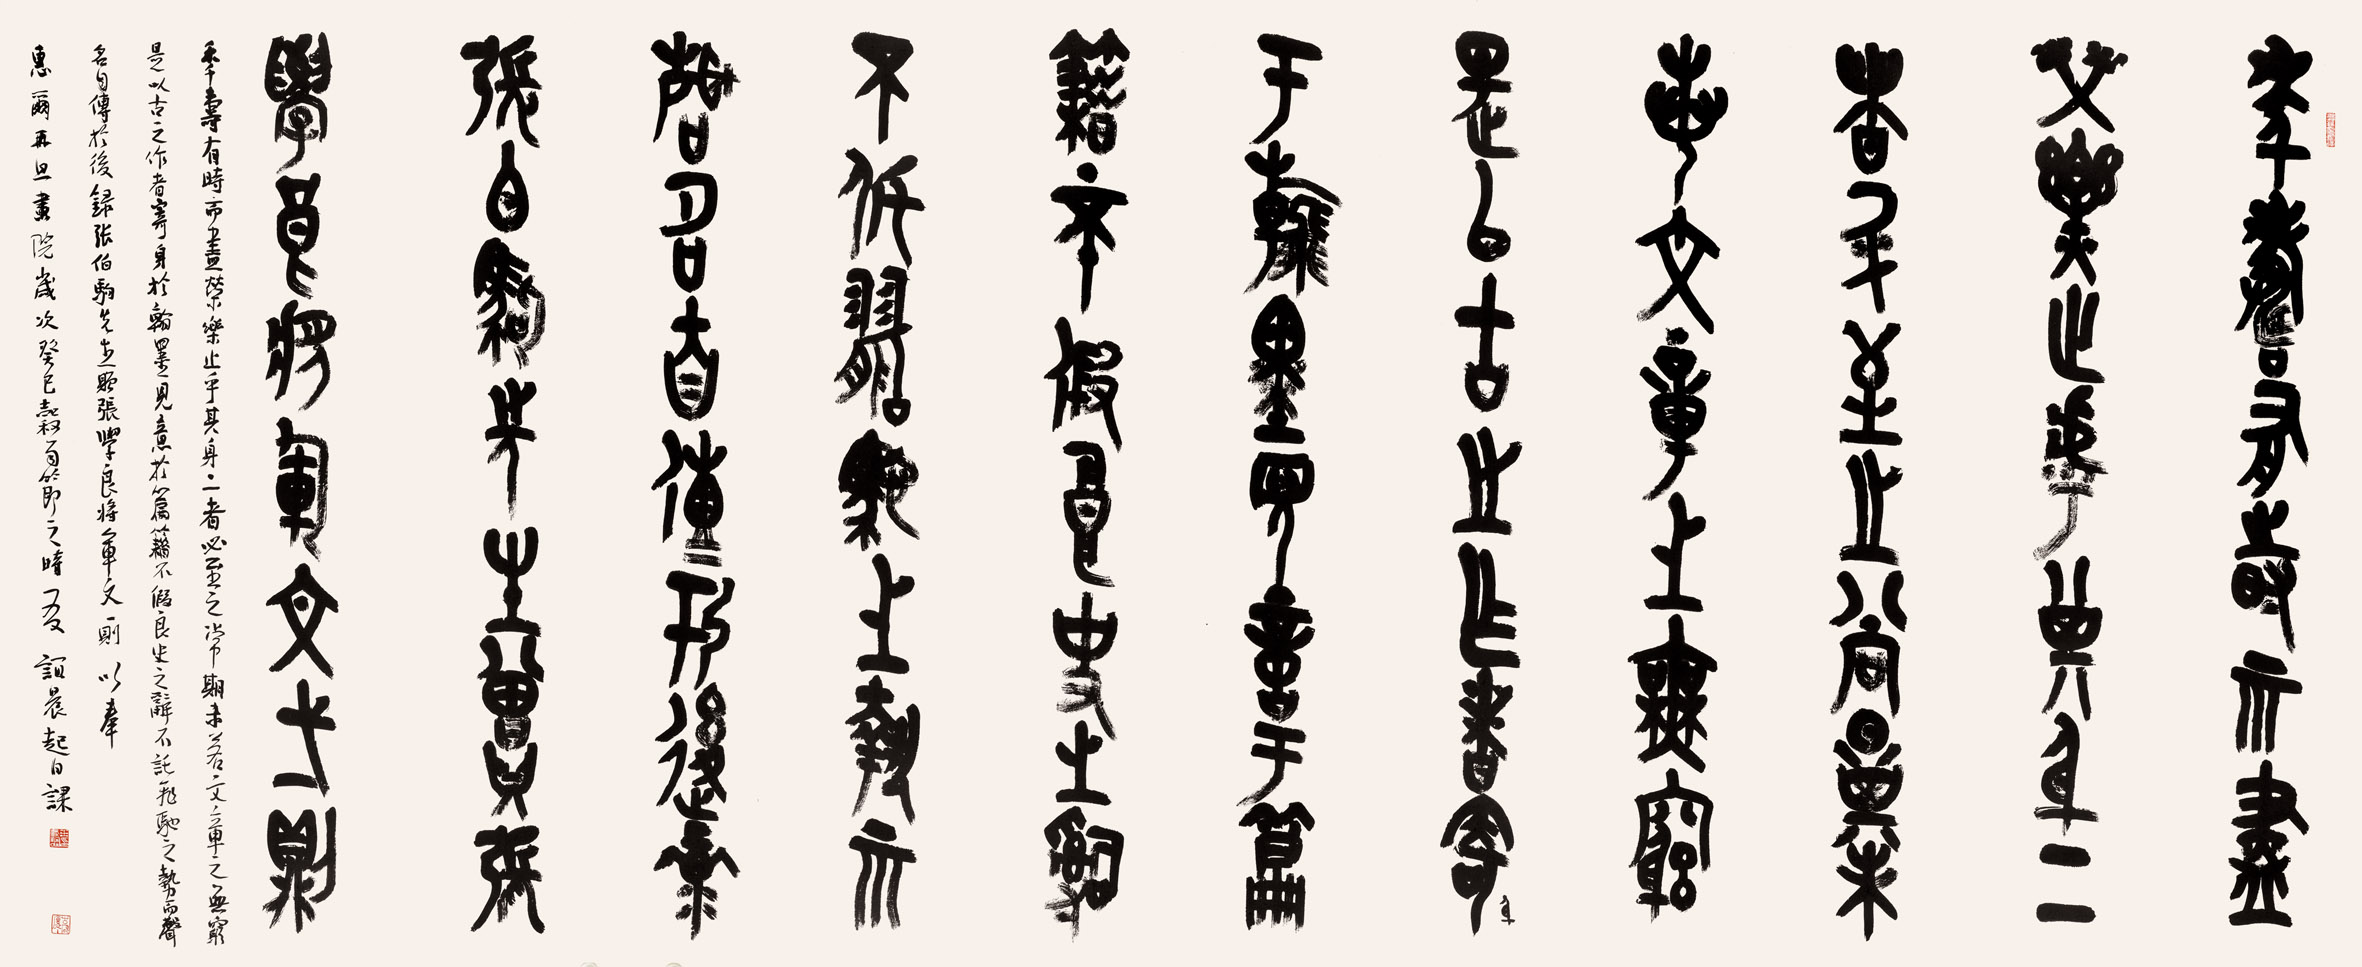 年壽有時而盡
榮樂止乎其身二
者必至之常期未
若文章之無窮
是以古之作者寄身
于翰墨見意于篇
籍不假良史之辭
不託飛馳之勢而
聲名自傳于後
張伯駒先生贈張
學良將軍文一則
年壽有時而盡榮樂止乎其身二者必至之常期未若文章之無窮
是以古之作者寄身於翰墨見意於篇籍不假良史之辭不託飛馳之勢而聲
名自傳於後錄張伯駒先生贈張學良將軍文一則以奉
惠爾再旦畫院歲次癸巳穀雨節即之時誼晨起日課